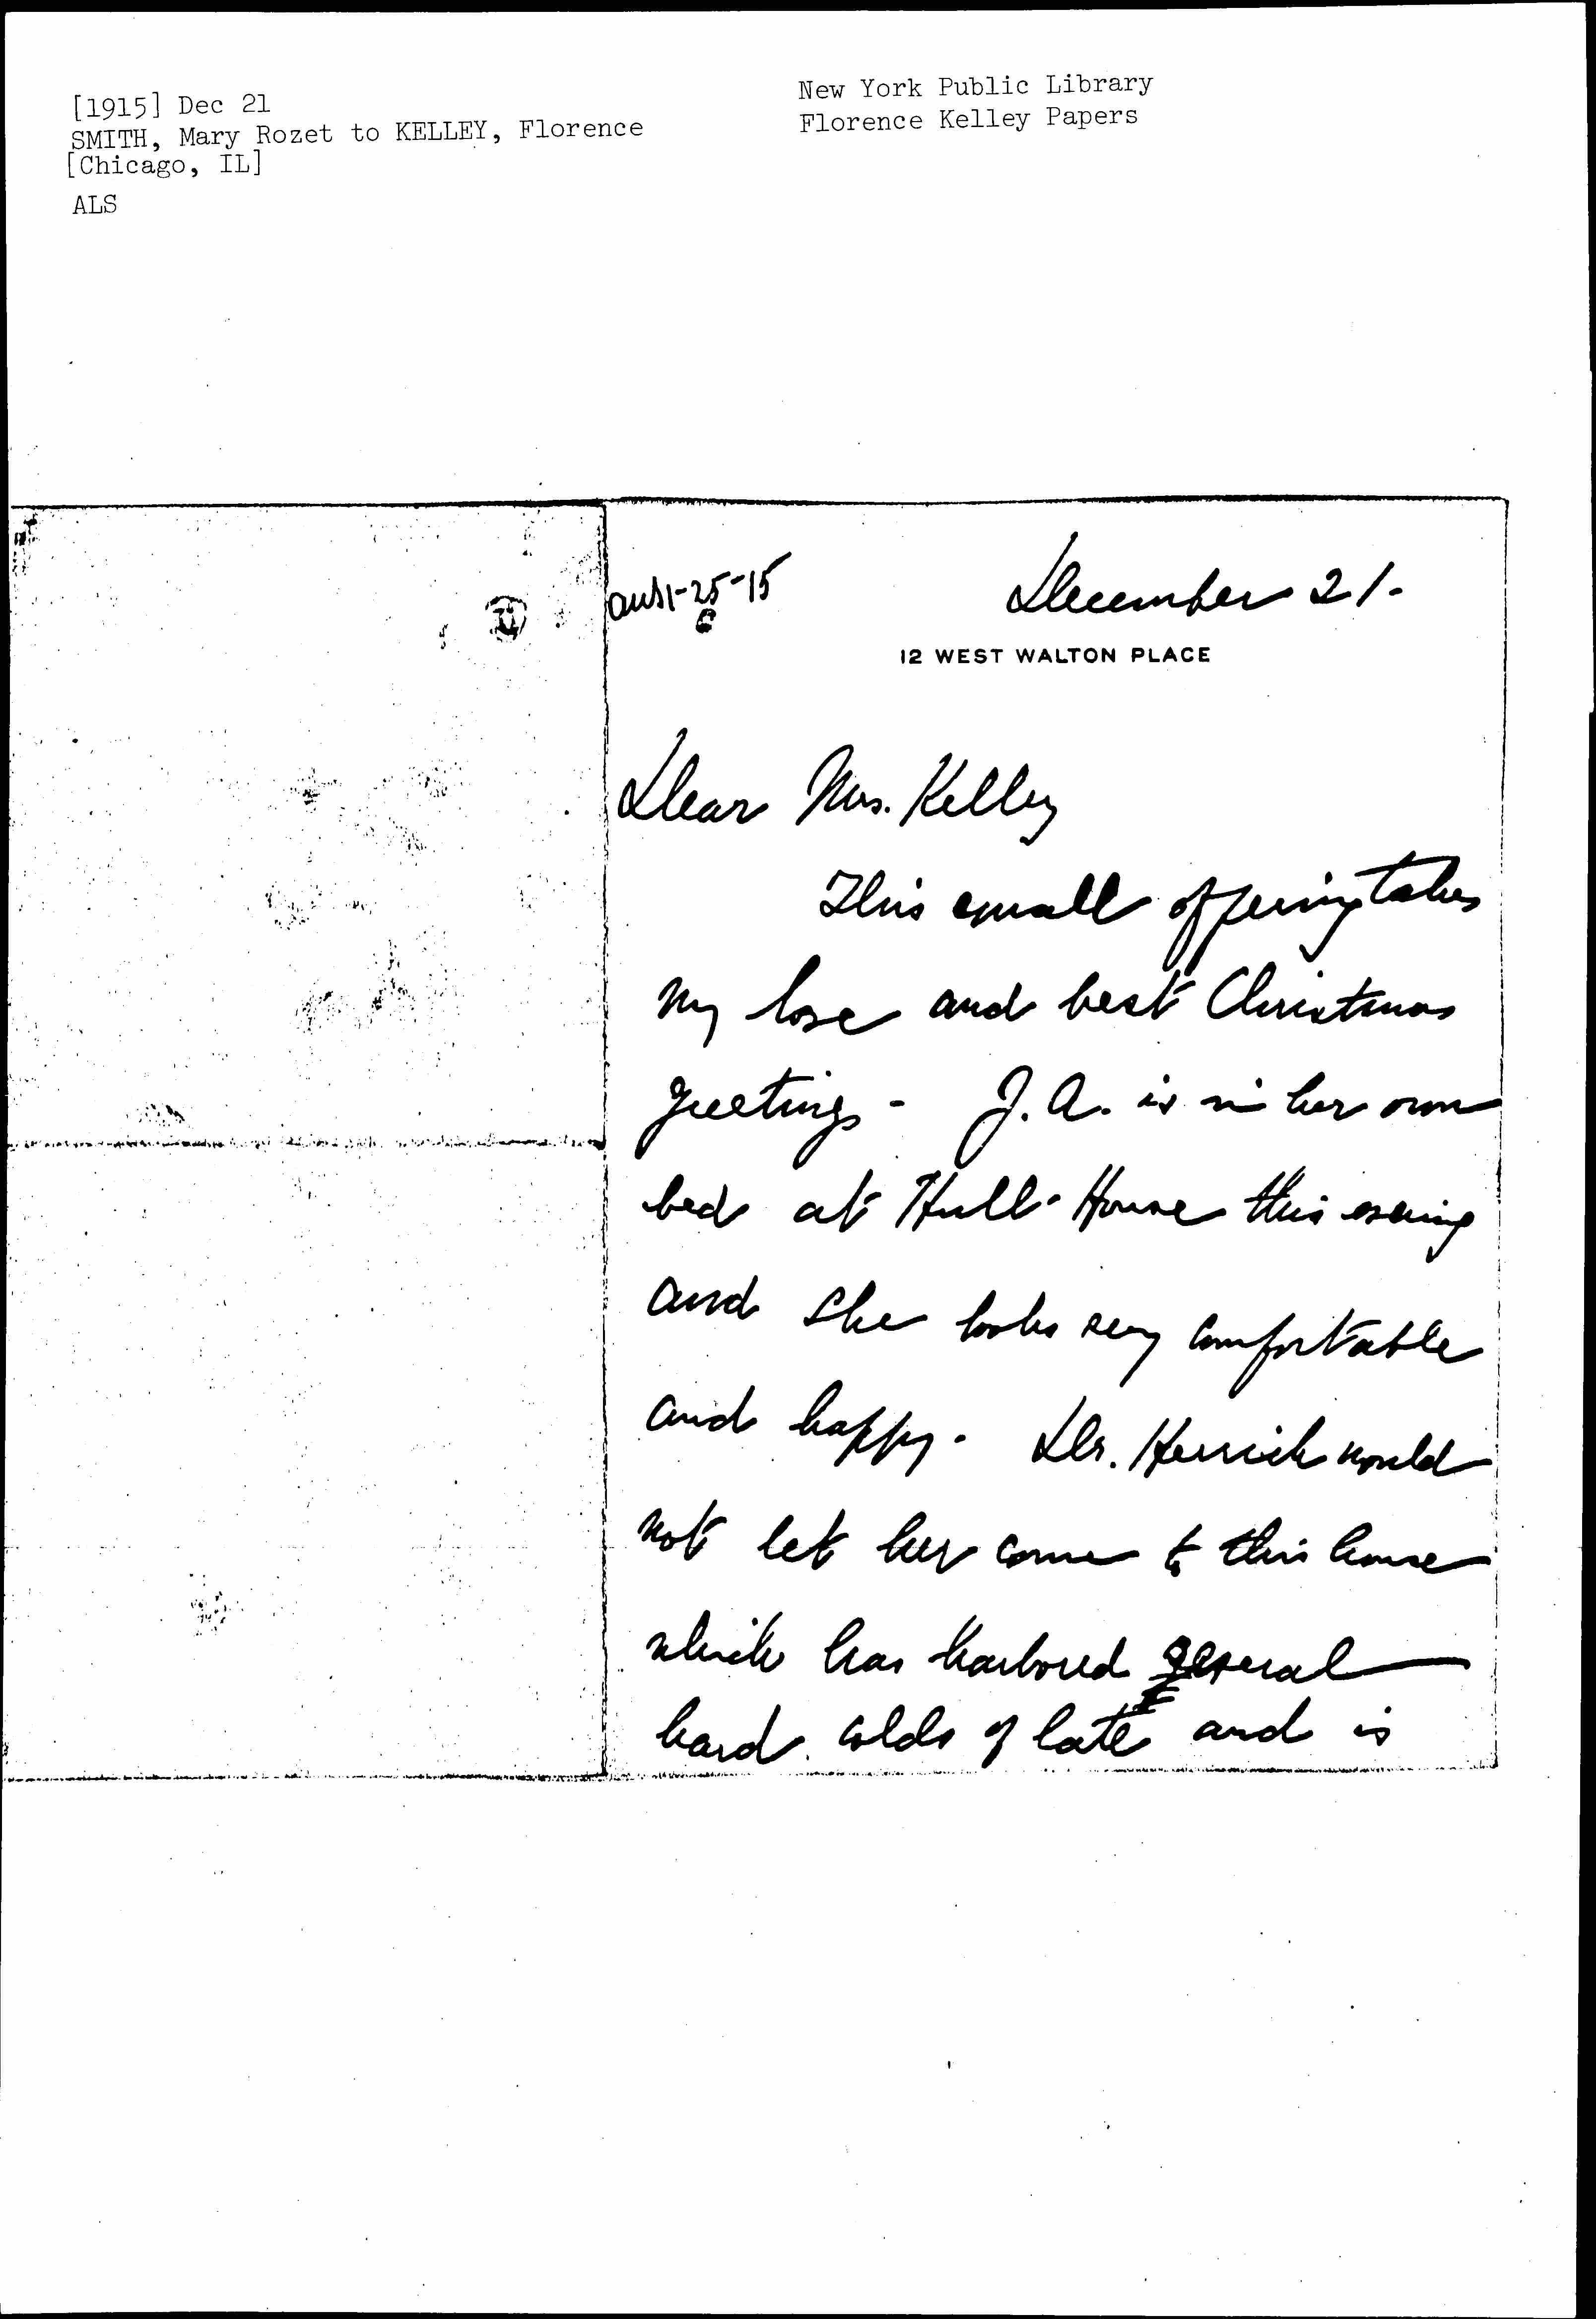 [1915] Dec 21
SMITH, Mary Rozet to KELLEY, Florence
[Chicago, IL]
ALS
New York Public Library
Florence Kelley Papers
ans 1-25-15
6
December 21-
12 WEST WALTON PLACE
Dear Mrs. Kelley
This small offering takes
my love and best Christmas
greetings - J.A. is in her own
bed at Hull-House this evening
and she looks very comfortable
and happy. Dr. Herrick would
not let her come to this house
which has harbored several
hard colds of late and is